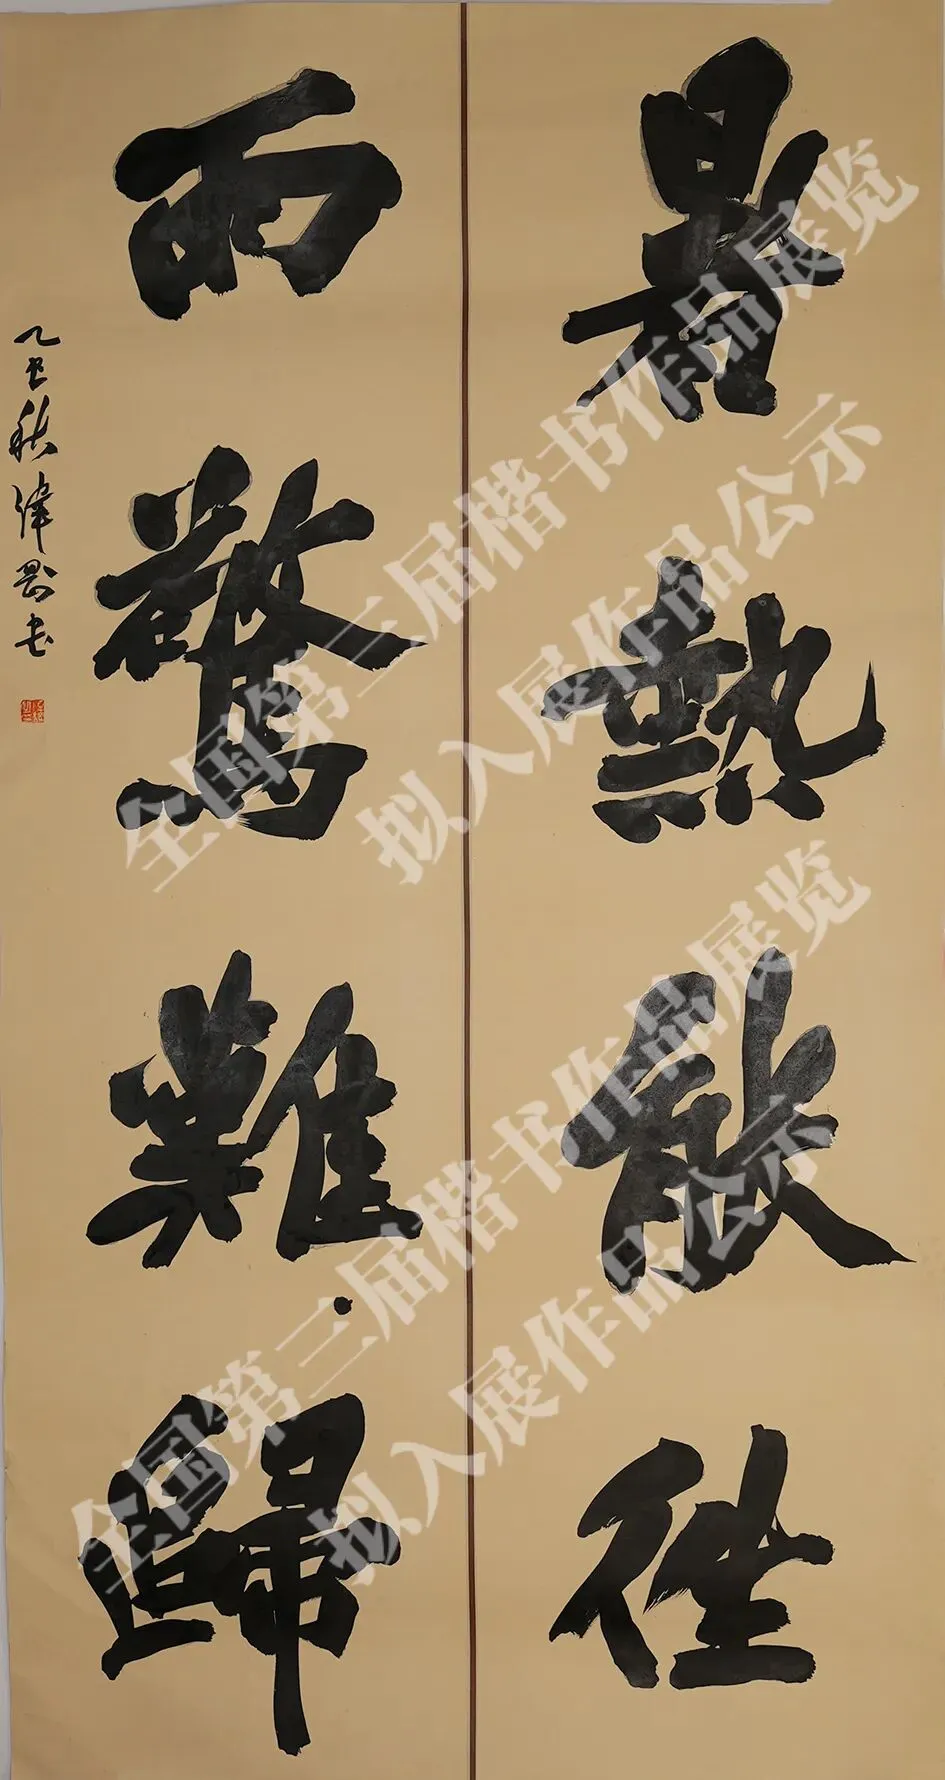 暑熱往
而驚難歸
乙巳秋書
全国第三届楷书作品展览
拟入展作品公示
全国第三届楷书作品展览
拟入展作品公示